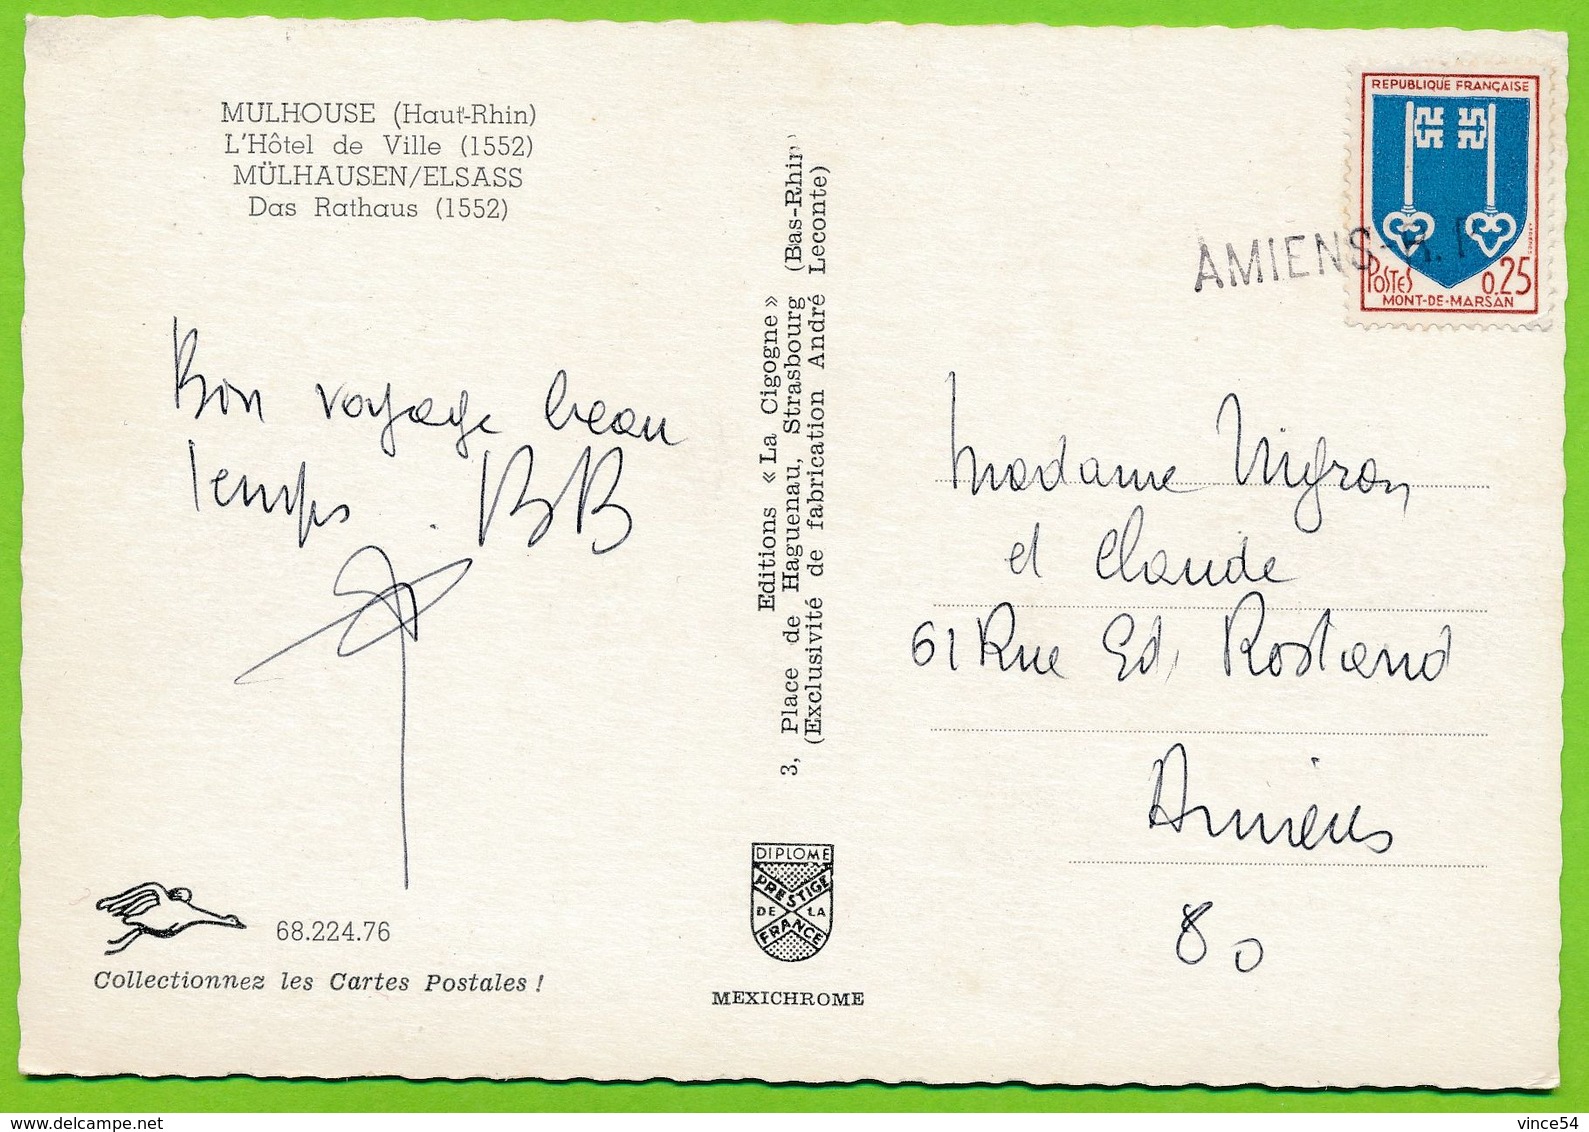 MULHOUSE (Haut-Rhin)
L'Hôtel de Ville (1552)
MÜLHAUSEN/ELSASS
Das Rathaus (1552)
Bon voyage beau
temps. BB
68.224.76
Collectionnez les Cartes Postales !
Editions « La Cigogne »
3, Place de Haguenau, Strasbourg (Bas-Rhin)
(Exclusivité de fabrication André Leconte)
DIPLOME
PRESTIGE
DE LA
FRANCE
MEXICHROME
REPUBLIQUE FRANÇAISE
POSTES 0.25
MONT-DE-MARSAN
AMIENS-R.P
Madame Nigron
et Claude
61 Rue Ed. Rostand
Amiens
80
delcampe.net
vince54